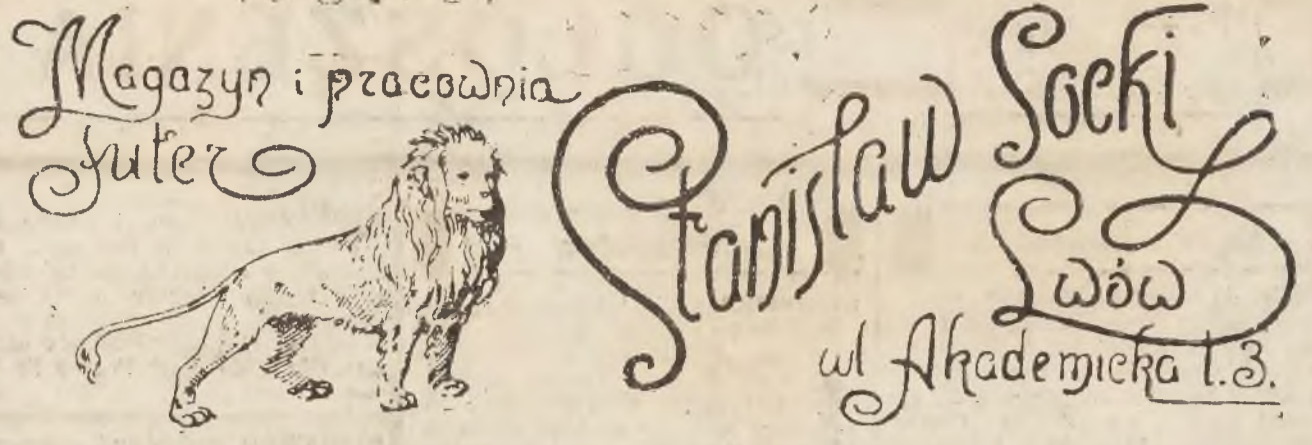 Magazyn i pracownia
futer
Stanisław Socki
Lwów
ul Akademicka l.3.